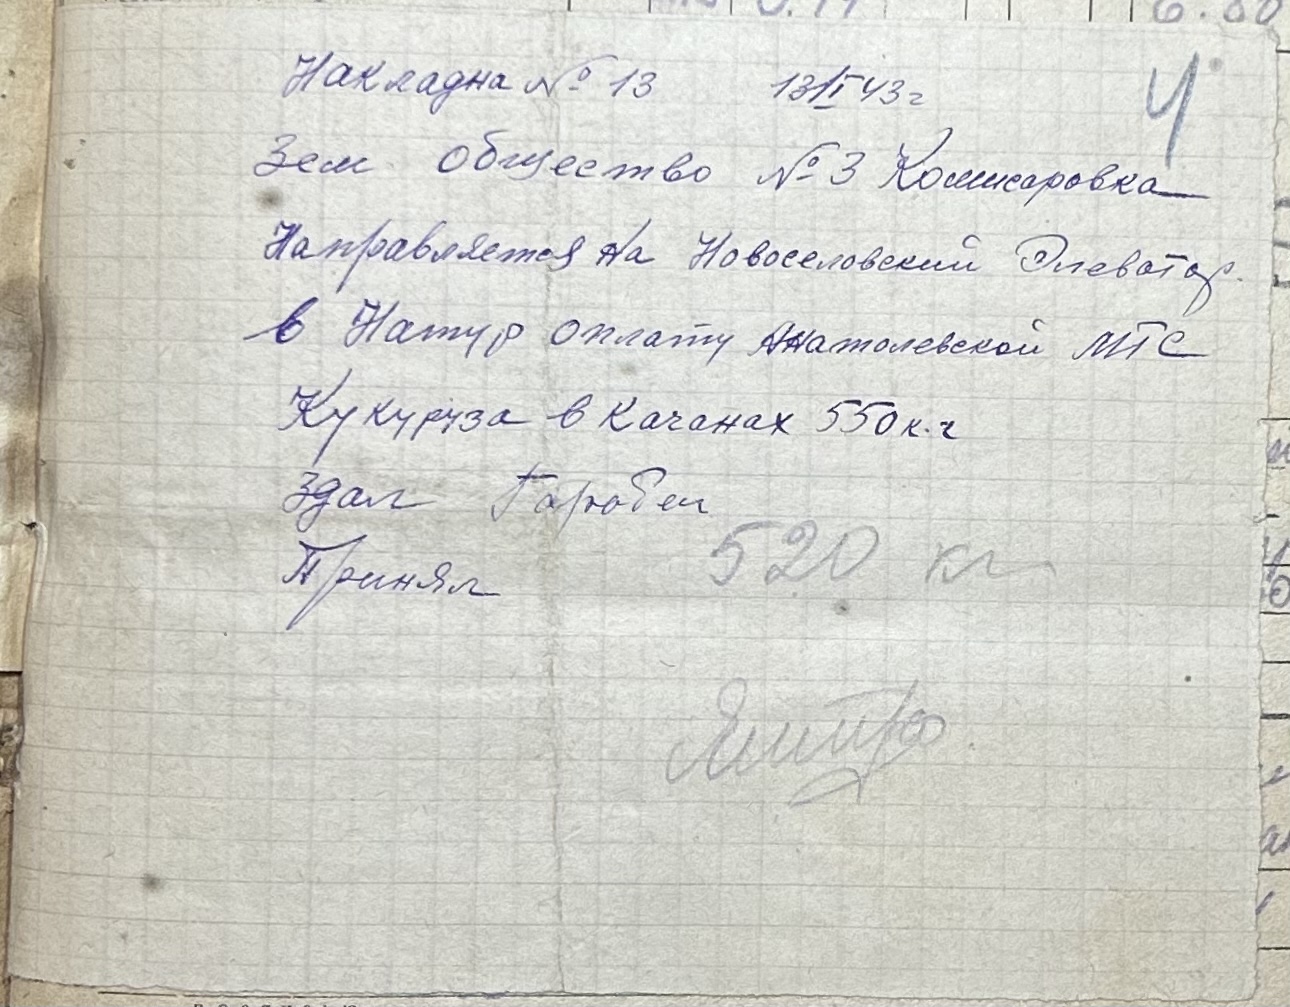 Накладна № 13 13/II 43 г
4
Зем Общество № 3 Комисаровка
Направляется На Новоселовский Элеватор
в Натур оплату Анатолевской МТС
Кукуруза в Качанах 550 к.г
Здал
520 кг
Принял